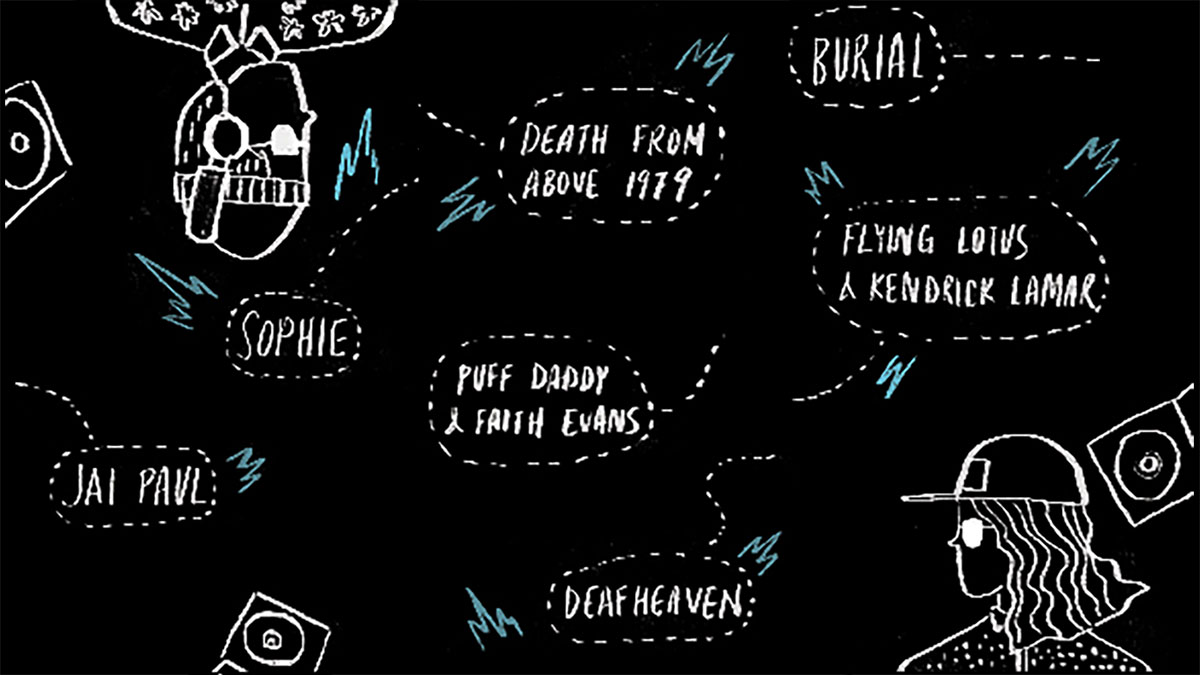 BURIAL
DEATH FROM
ABOVE 1979
FLYING LOTUS
& KENDRICK LAMAR
SOPHIE
PUFF DADDY
& FAITH EVANS
JAI PAUL
DEAFHEAVEN